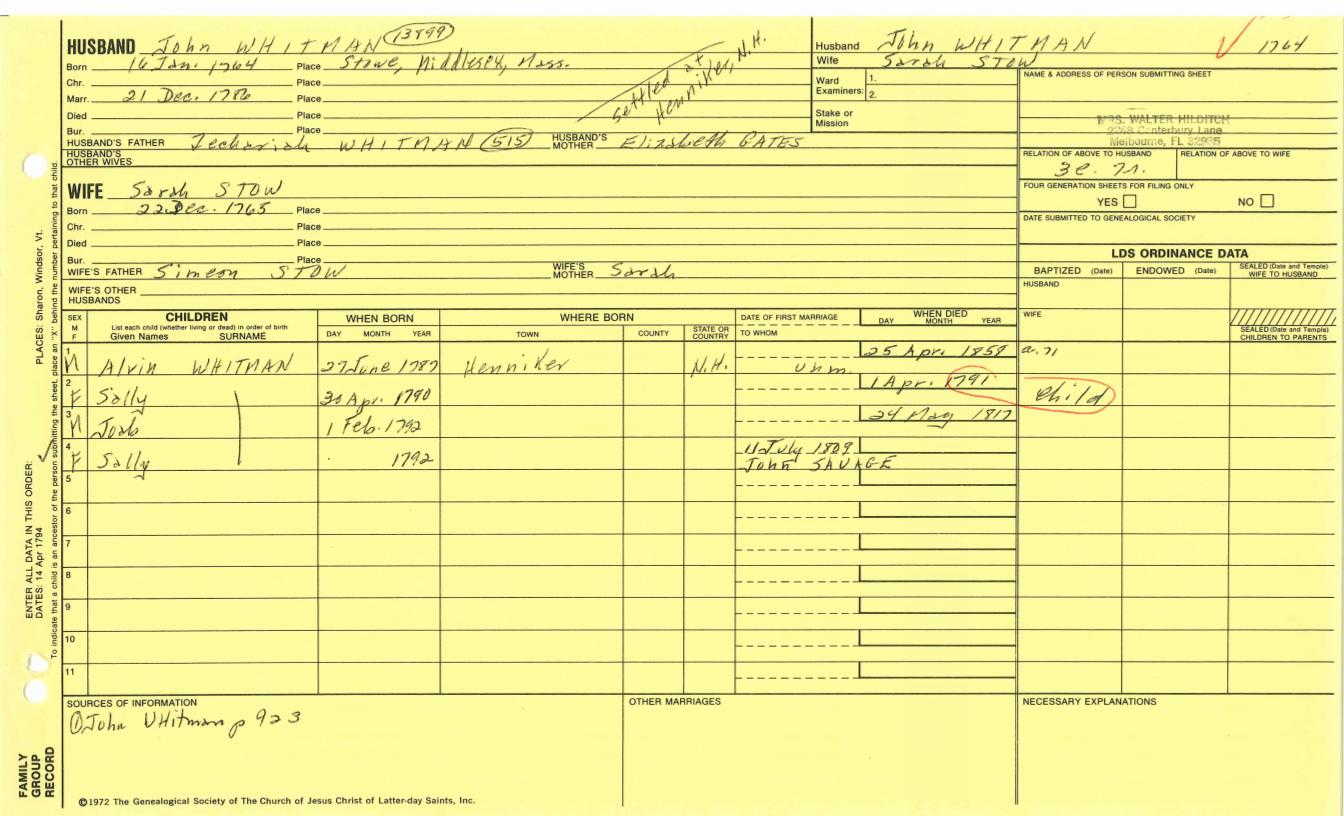 HUSBAND John WHITMAN 13899
Born 16 Jan. 1764 Place Stowe, Middlesex, Mass.
Chr. Place
Marr. 21 Dec. 1786 Place
Died Place
Bur. Place
settled at
Henniker, N.H.
HUSBAND'S FATHER Zechariah WHITMAN 515 HUSBAND'S MOTHER Elizabeth GATES
HUSBAND'S OTHER WIVES
WIFE Sarah STOW
Born 22 Dec. 1765 Place
Chr. Place
Died Place
Bur. Place
WIFE'S FATHER Simeon STOW WIFE'S MOTHER Sarah
WIFE'S OTHER HUSBANDS
Husband John WHITMAN 1764
Wife Sarah STOW
Ward 1.
Examiners: 2.
Stake or
Mission
NAME & ADDRESS OF PERSON SUBMITTING SHEET
MRS. WALTER HILDITCH
Canterbury Lane
Melbourne, FL 32935
RELATION OF ABOVE TO HUSBAND RELATION OF ABOVE TO WIFE
FOUR GENERATION SHEETS FOR FILING ONLY
YES NO
DATE SUBMITTED TO GENEALOGICAL SOCIETY
LDS ORDINANCE DATA
BAPTIZED (Date) ENDOWED (Date) SEALED (Date and Temple) WIFE TO HUSBAND
HUSBAND
WIFE
SEALED (Date and Temple) CHILDREN TO PARENTS
SEX M F CHILDREN WHEN BORN WHERE BORN DATE OF FIRST MARRIAGE WHEN DIED
List each child (whether living or dead) in order of birth
Given Names SURNAME DAY MONTH YEAR TOWN COUNTY STATE OR COUNTRY TO WHOM DAY MONTH YEAR
1 M Alvin WHITMAN 27 June 1787 Henniker N.H. Unm. 25 Apr. 1858
2 F Sally 30 Apr. 1790 1 Apr. 1791 Child
3 M Joab 1 Feb. 1792 24 May 1817
4 F Sally 1792 11 July 1809
John SAVAGE
5
6
7
8
9
10
11
SOURCES OF INFORMATION
① John WHitman p 923
OTHER MARRIAGES
NECESSARY EXPLANATIONS
©1972 The Genealogical Society of The Church of Jesus Christ of Latter-day Saints, Inc.
PLACES: Sharon, Windsor, Vt.
ENTER ALL DATA IN THIS ORDER:
DATES: 14 Apr 1794
To indicate that a child is an ancestor of the person submitting the sheet, place an "X" behind the number pertaining to that child.
FAMILY
GROUP
RECORD